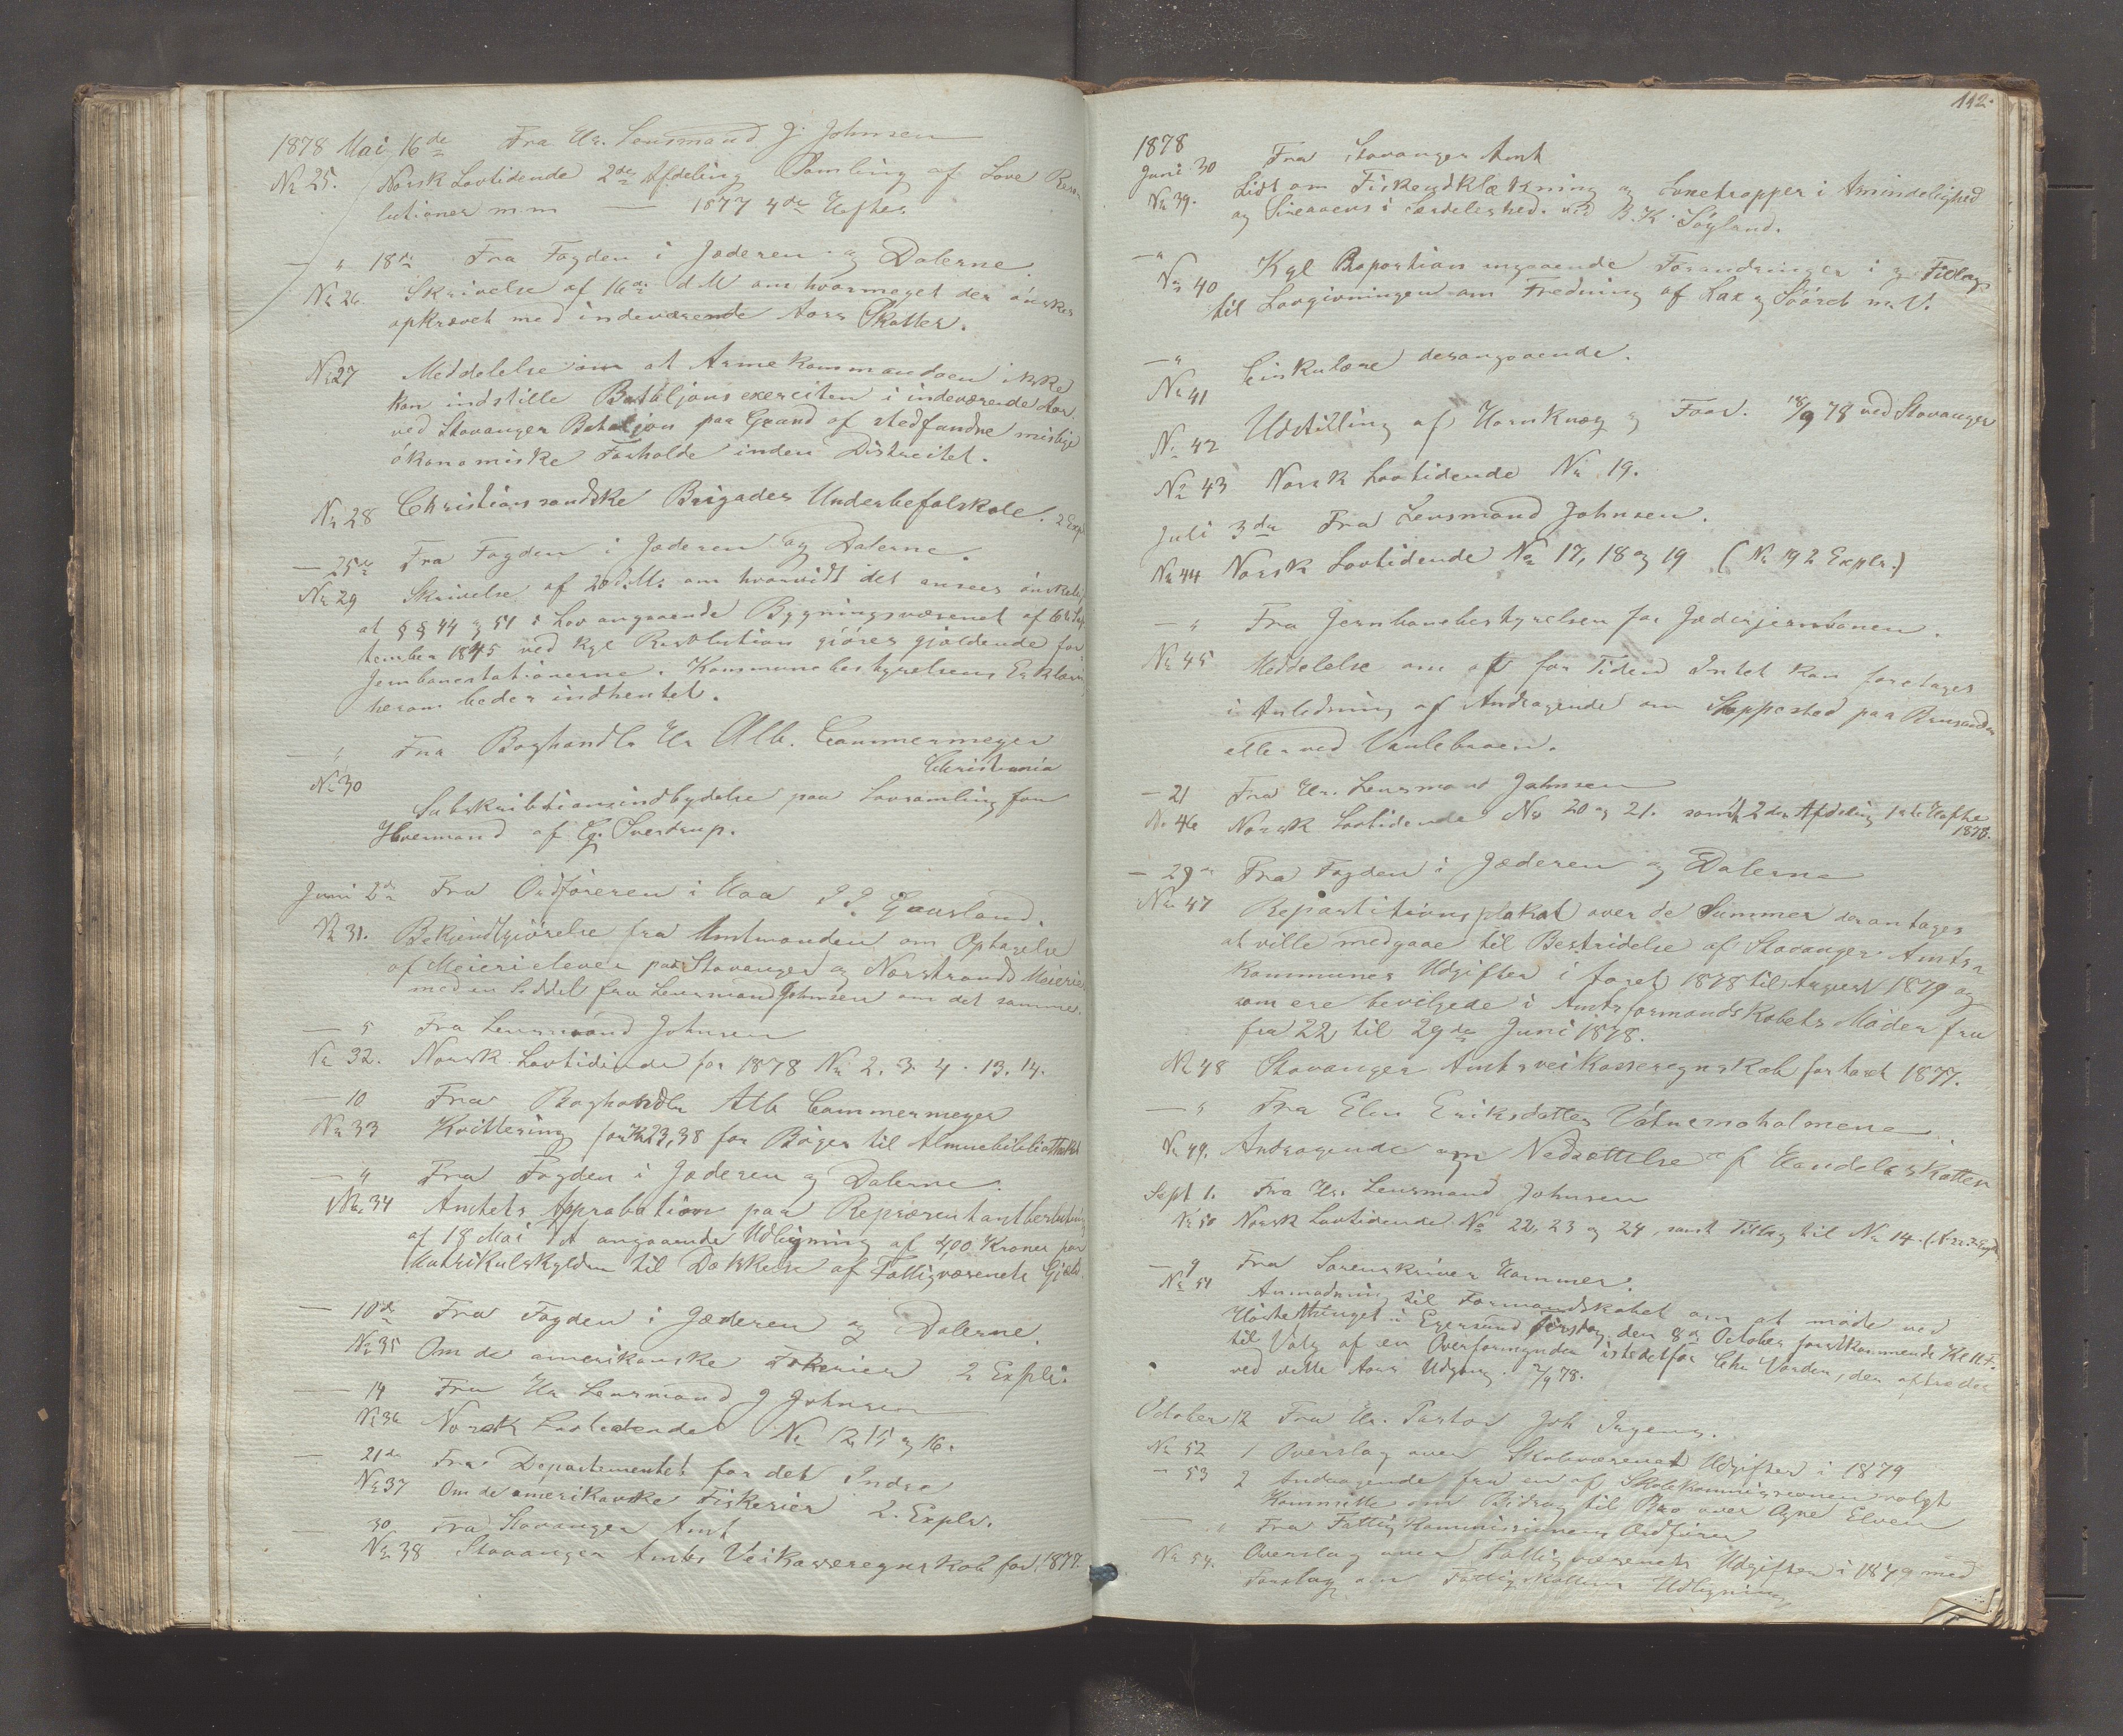 1878 Mai 16de Fra Hr. Lensmand J. Johnsen
No 25. Norsk Lovtidende 2den Afdeling Samling af Love Reso-
lutioner m.m. — 1877 4de Hefte
— " 18de Fra Fogden i Jæderen og Dalerne.
No 26 Skrivelse af 16de d.M om hvormeget der ønskes
opkrævet med indeværende Aars Skatter.
No 27 Meddelelse om at Armekommandoen ikke
kan indstille Bataljonsexerciten i indeværende Aar
ved Stavanger Bataljon paa Grund af stedfundne mislige
økonomiske Forholde inden Distrcitet.
No 28 Christianssandske Brigades Underbefalskole. 2 Expl
— 25de Fra Fogden i Jæderen og Dalerne.
No 29 Skrivelse af 20 d.M. om hvorvidt det ansees ønskelig
at §§ 44 og 51 i Lov angaaende Bygningsvæsenet af 6te Sep-
tember 1845 ved Kgl Resolution gjøres gjældende for
Jernbanestationerne. Kommunebestyrelsens Erklæring
herom bedes indhentet.
— " Fra Boghandler Hr Alb. Cammermeyer
Christiania
No 30
Subskribtionsindbydelse paa Lovsamling for
Hvermand af Sverdrup.
Juni 2de Fra Ordføreren i Haa Gausland.
No 31. Bekjendtgjørelse fra Amtmanden om Optagelse
af Meierielever paa Stavanger og Norstrands Meierie
med en Seddel fra Lensmand Johnsen om det samme.
— 5 Fra Lensmand Johnsen
No 32. Norsk Lovtidende for 1878 No 2. 3. 4. 13. 14.
— 10 Fra Boghandler Alb Cammermeyer
No 33 Kvittering for Kr 23,38 for Bøger til Almuebibliotheket
— " Fra Fogden i Jæderen og Dalerne.
No 34 Amtets Approbation paa Repræsentantbeslutning
af 18 Mai angaaende Udligning af 4,00 Kroner par
Matrikulskylden til Dækkelse af Fattigvæsenets Gjæld.
— 10de Fra Fogden i Jæderen og Dalerne.
No 35 Om de amerikanske Fiskerier 2 Expl.
— 14 Fra Hr Lensmand J Johnsen
No 36 Norsk Lovtidende No 12, 15 og 16.
— 21de Fra Departementet for det Indre
No 37 Om de amerikanske Fiskerier 2. Explr.
— 30 Fra Stavanger Amt
No 38 Stavanger Amts Veikasseregnskab for 1877.
112.
1878
Juni 30 Fra Stavanger Amt
No 39. Lidt om Fiskeudklækning og Laxetrapper i Almindelighed
og Sireaaens i Særdeleshed. ved B. K. Søyland.
— "
No 40 Kgl Proposition angaaende Forandringer i og Tillæg
til Lovgivningen om Fredning af Lax og Søøret m.V.
— "
No 41 Cirkulære desangaaende.
No 42 Udstilling af Hornkvæg og Faar. 18/9 78 ved Stavanger
No 43 Norsk Lovtidende No 19.
Juli 3de Fra Lensmand Johnsen.
No 44 Norsk Lovtidende No 17, 18 og 19 (No 19 2 Explr.)
— " Fra Jernbanebestyrelsen for Jæderjernbanen.
No 45 Meddelelse om at for Tiden Intet kan foretages
i Anledning af Andragende om Stoppested paa Brusanden
eller ved Vaulebroen.
— 21 Fra Hr. Lensmand Johnsen
No 46 Norsk Lovtidende No 20 og 21. samt 2den Afdeling 1ste Hefte
1878.
— 29de Fra Fogden i Jæderen og Dalerne
No 47 Repartitionsplakat over de Summer der antages
at ville medgaae til Bestridelse af Stavanger Amts-
kommunes Udgifter i Aaret 1878 til August 1879 og
som ere bevilgede i Amtsformandskabets Møder fra
fra 22 til 29de Juni 1878.
No 48 Stavanger Amtsveikasseregnskab for Aaret 1877.
— " Fra Elen Eriksdatter Vatnemoholmene.
No 49. Andragende om Nedsættelse af Handelsskatten
Sept 1. Fra Hr. Lensmand Johnsen
No 50 Norsk Lovtidende No 22, 23 og 24, samt Tillæg til No 14.
— 9 Fra Sorenskriver Hammer.
No 51 Anmodning til Formandskabet om at møde ved
Høstethinget i Egersund den 8de October førstkommende Kl 11 F.
til Valg af en Overformynder istedetfor Chr Varden, der aftræder
ved dette Aars Udgang. 2/9 78.
October 12 Fra Hr. Pastor Joh
No 52 1 Overslag over Skolevæsenets Udgifter i 1879
— 53 2 Andragende fra en af Skolekommissionen valgt
Kommitte om Bidrag til Bro over Ogne Elven
— " Fra Fattigkommissionens Ordfører
No 54. Overslag over Fattigvæsenets Udgifter i 1879 med
Forslag om Fattigskattens Udligning